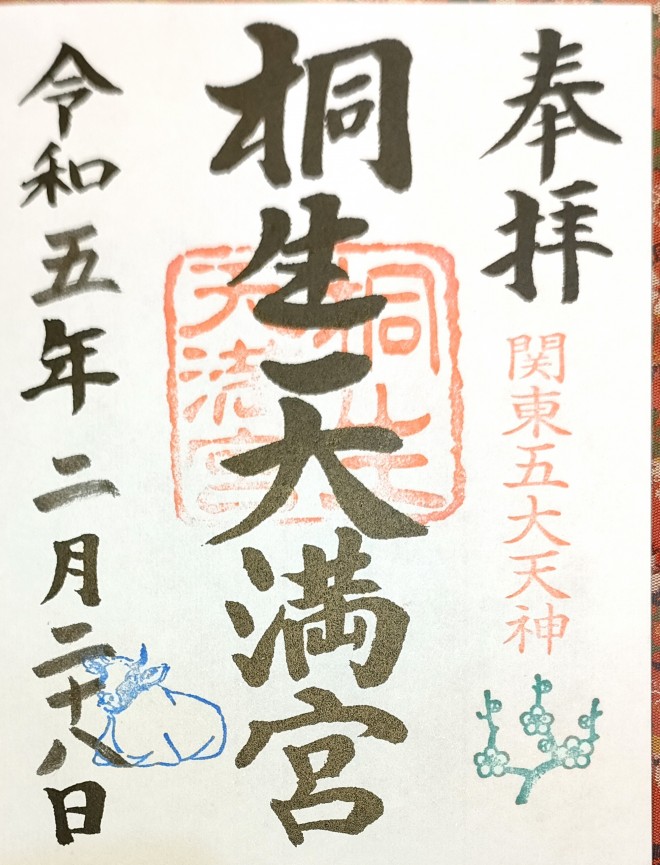 奉拝
関東五大天神
桐生天満宮
桐生
天満宮
令和五年二月二十八日